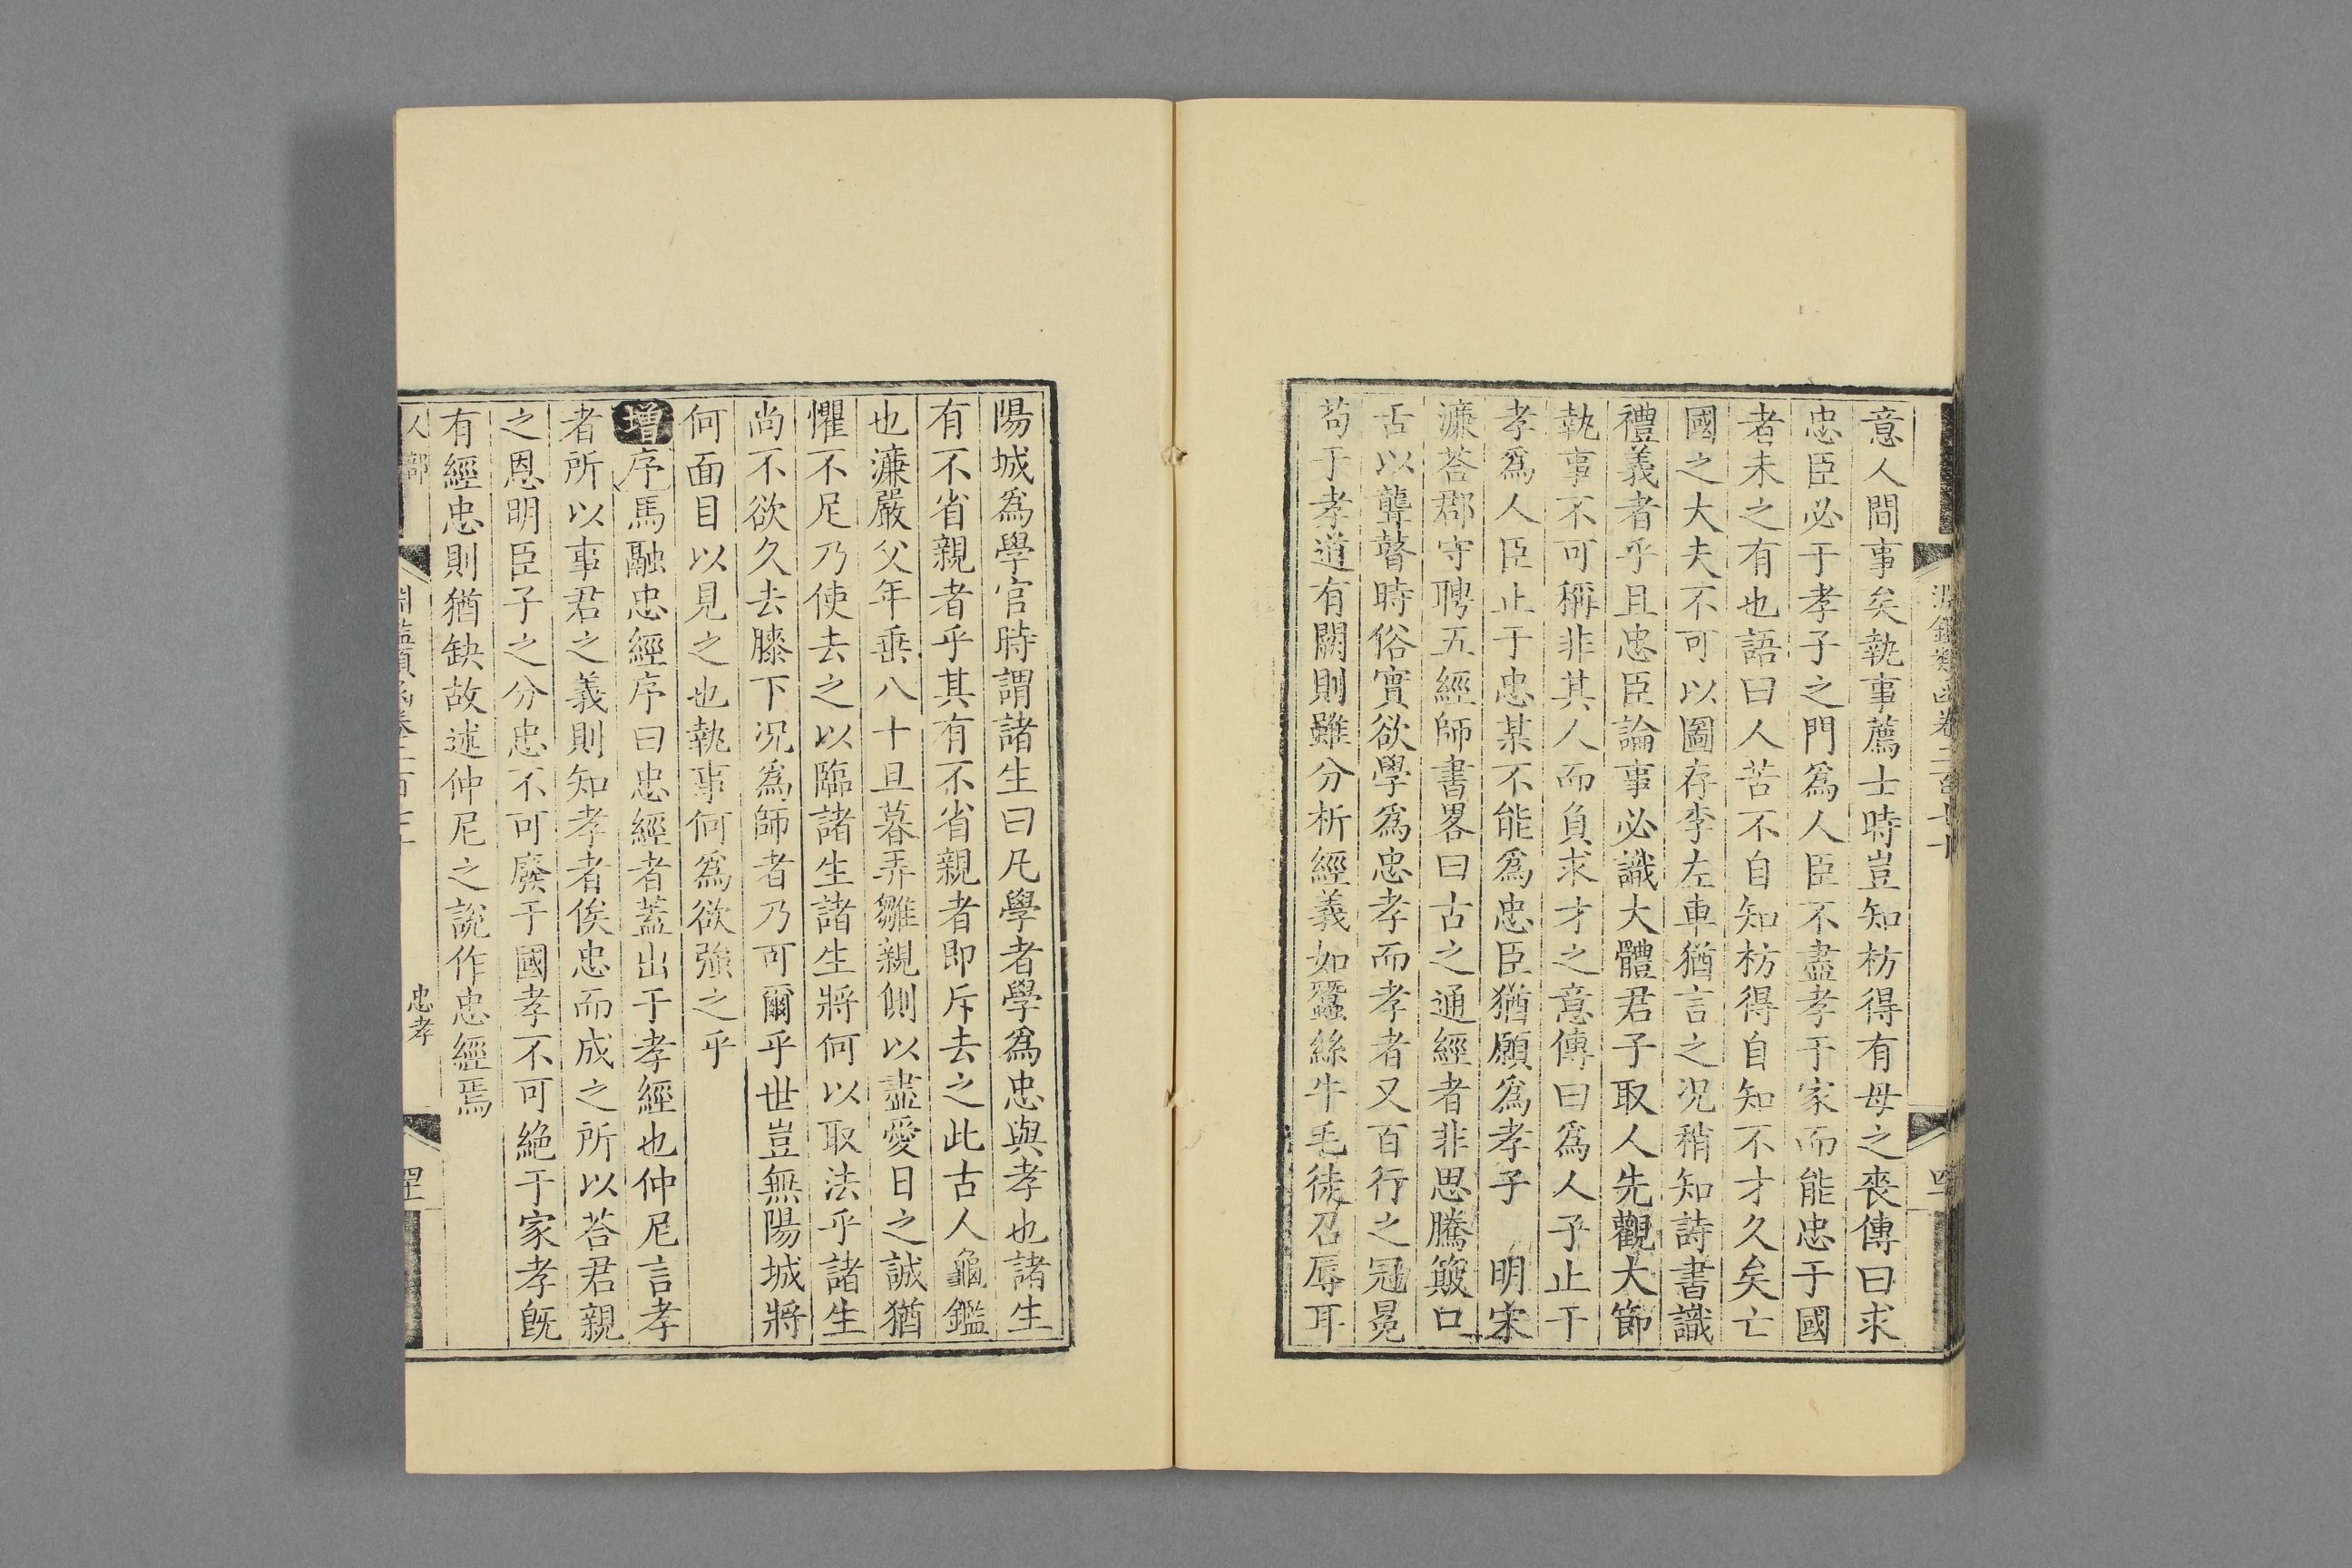 意人間事矣執事薦士時豈知枋得有母之喪傳曰求
忠臣必于孝子之門爲人臣不盡孝于家而能忠于國
者未之有也語曰人苦不自知枋得自知不才久矣亡
國之大夫不可以圖存李左車猶言之况稍知詩書識
禮義者乎且忠臣論事必識大體君子取人先觀大節
執事不可稱非其人而負求才之意傳曰爲人子止于
孝爲人臣止于忠某不能爲忠臣猶願爲孝子 明宋
濂荅郡守聘五經師書畧曰古之通經者非思騰簸口
舌以聾瞽時俗實欲學爲忠孝而孝者又百行之冠冕
苟于孝道有闕則雖分析經義如蠶絲牛毛徒召辱耳
陽城爲學官時謂諸生曰凡學者學爲忠與孝也諸生
有不省親者乎其有不省親者即斥去之此古人龜鑑
也濂嚴父年垂八十旦暮弄雛親側以盡愛日之誠猶
懼不足乃使去之以臨諸生諸生將何以取法乎諸生
尚不欲久去膝下况爲師者乃可爾乎世豈無陽城將
何面目以見之也執事何爲欲強之乎
增序馬融忠經序曰忠經者蓋出于孝經也仲尼言孝
者所以事君之義則知孝者俟忠而成之所以荅君親
之恩明臣子之分忠不可廢于國孝不可絶于家孝旣
有經忠則猶缺故述仲尼之說作忠經焉
人部
忠孝